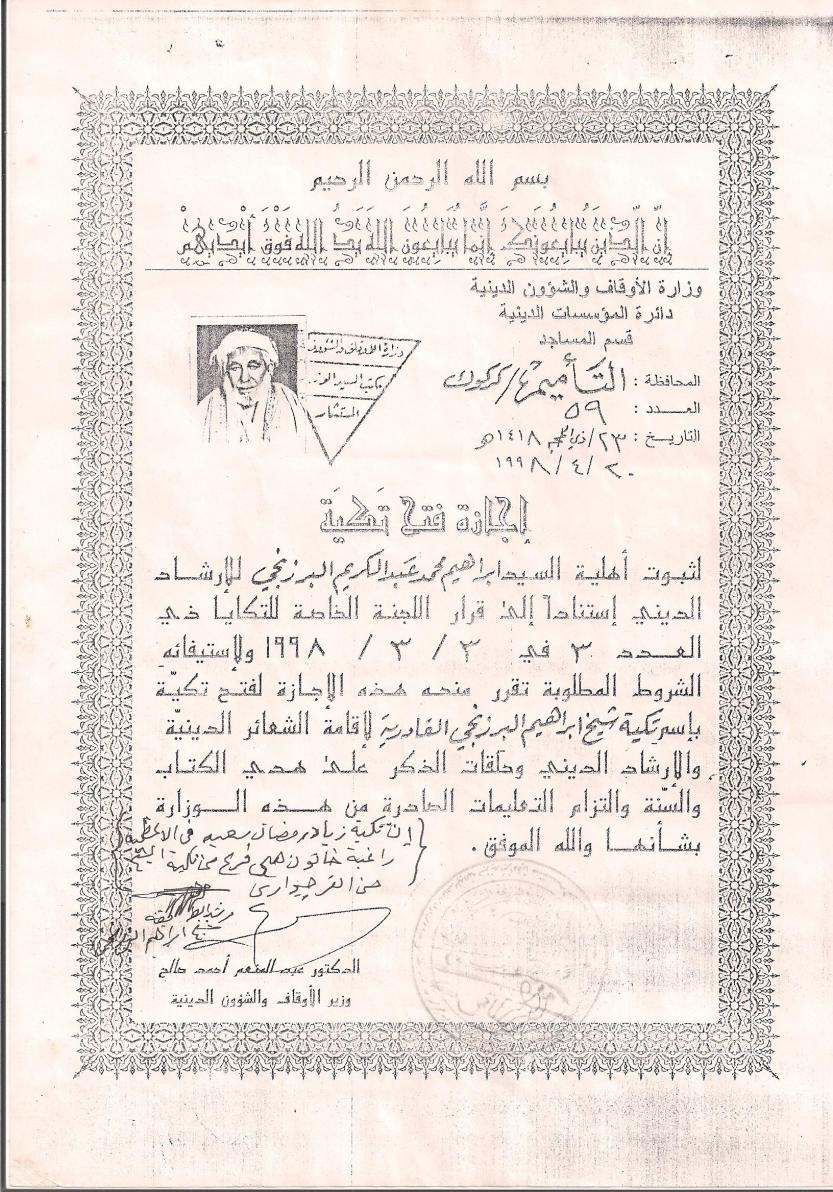 بسم الله الرحمن الرحيم
إِنَّ الَّذِينَ يُبَايِعُونَكَ إِنَّمَا يُبَايِعُونَ اللَّهَ يَدُ اللَّهِ فَوْقَ أَيْدِيهِمْ
وزارة الأوقاف والشؤون الدينية
دائرة المؤسسات الدينية
قسم المساجد
المحافظة : التأميم / كركوك
العـدد : ٥٩
التاريخ : ٢٣/ذي الحجة ١٤١٨هـ
٢٠ / ٤ / ١٩٩٨
وزارة الأوقاف والشؤون
مكتب السيد
المستشار
إجازة فتح تكية
لثبوت أهلية السيد ابراهيم محمد عبد الكريم البرزنجي للإرشاد
الديني إستناداً إلى قرار اللجنة الخاصة للتكايا ذي
العـدد ٣ في ٣ / ٣ / ١٩٩٨ ولإستيفائه
الشروط المطلوبة تقرر منحه هذه الإجازة لفتح تكيّة
بإسم تكية شيخ ابراهيم البرزنجي القادرية لإقامة الشعائر الدينيّة
والإرشاد الديني وحلقات الذكر على هدي الكتاب
والسّنة والتزام التعليمات الصادرة من هذه الـوزارة
بشأنهـا والله الموفق .
إن تكية زياد رمضان سعيد في الاعظمية
راغبة خاتون هي فرع من تكية
الدكتور عبد المنعم أحمد صالح
وزير الأوقاف والشؤون الدينية